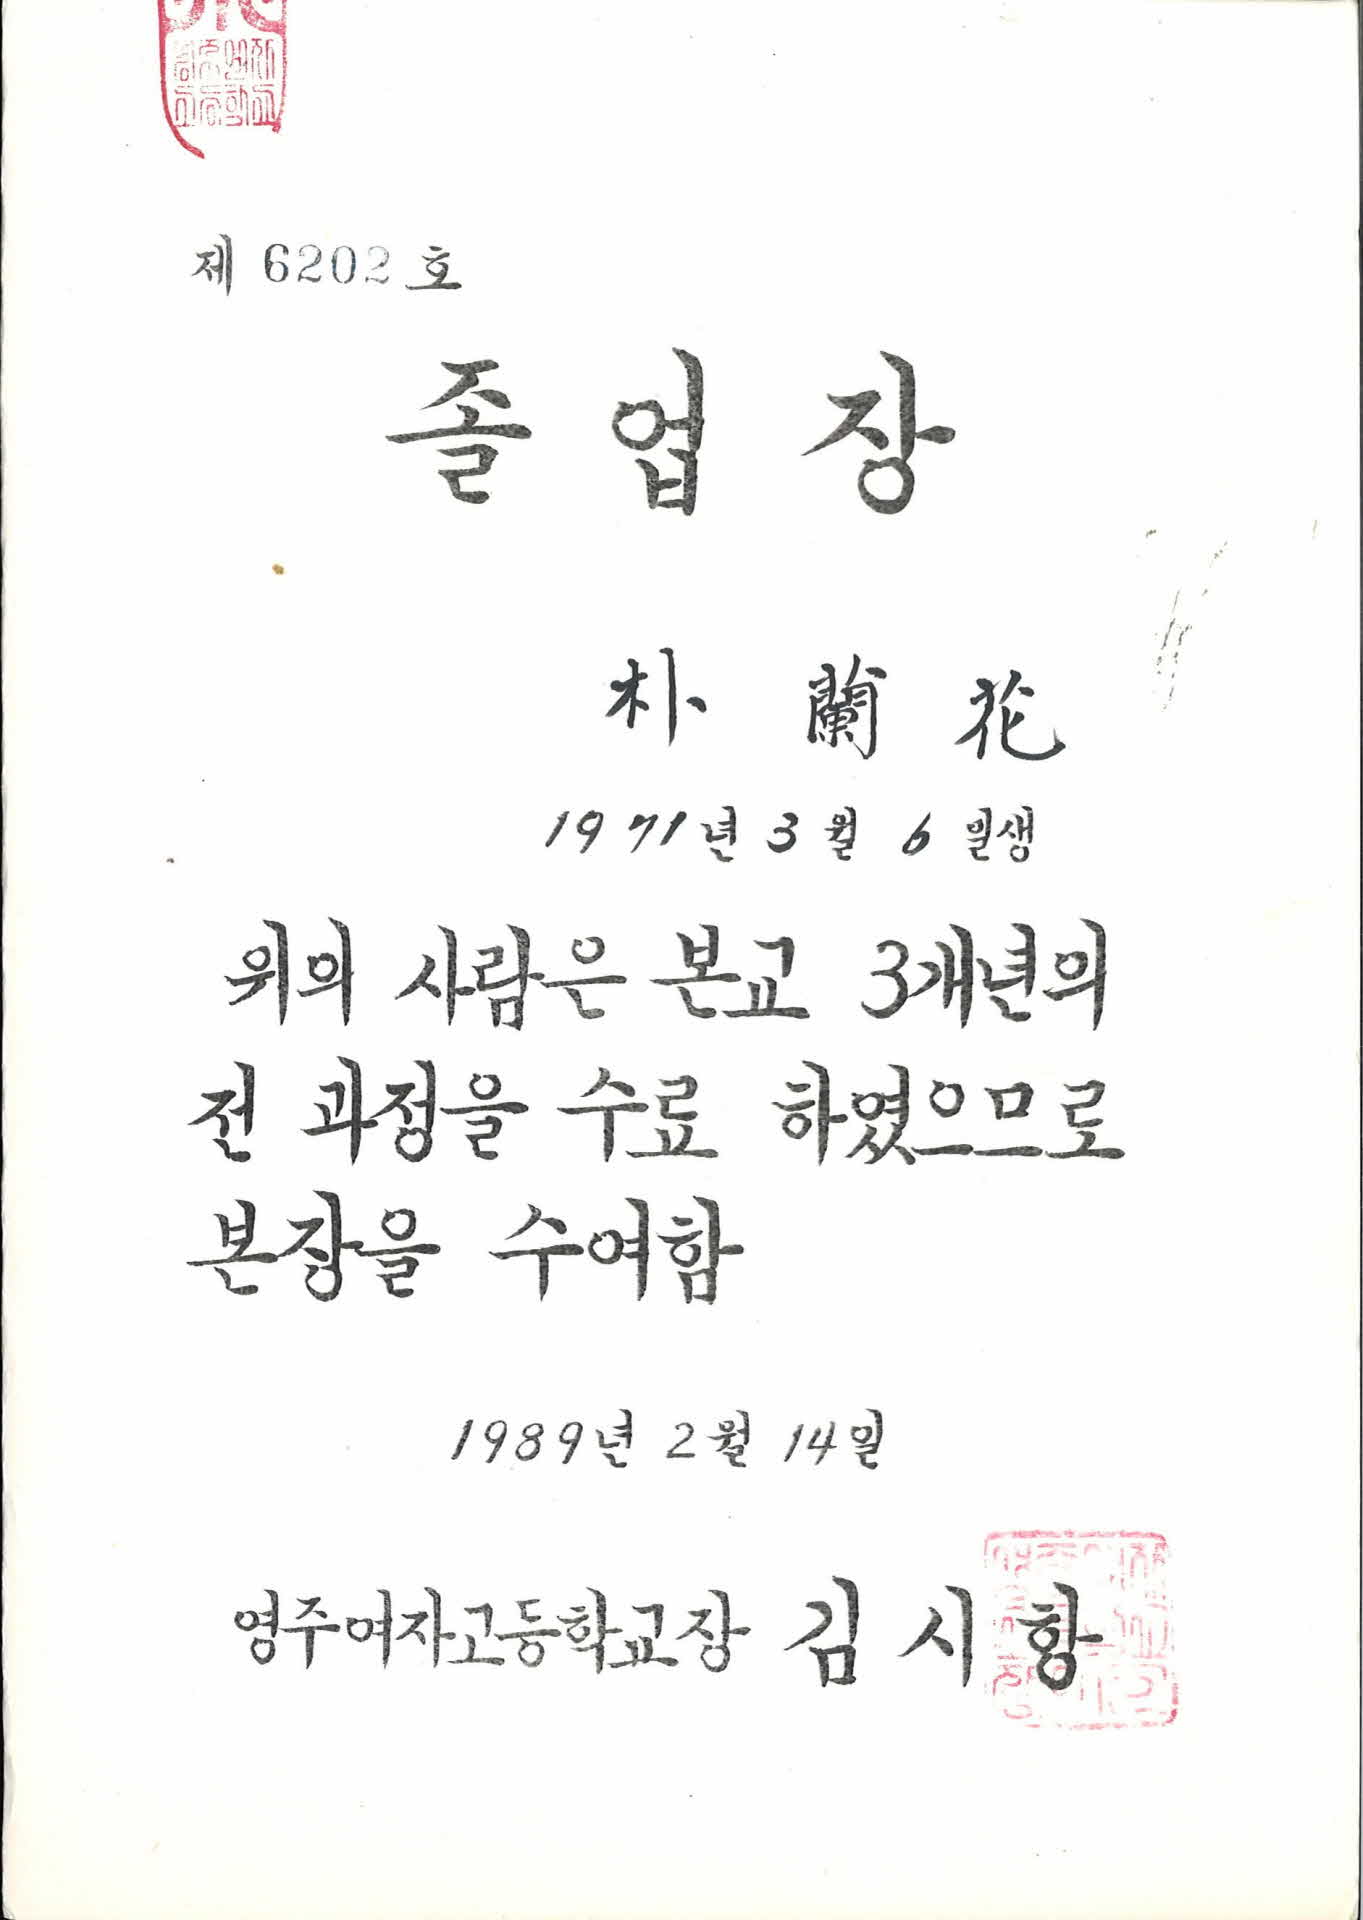 제 6202 호
졸업장
朴 蘭 花
1971년 3월 6일생
위의 사람은 본교 3개년의
전 과정을 수료 하였으므로
본장을 수여함
1989년 2월 14일
영주여자고등학교장 김 시 황